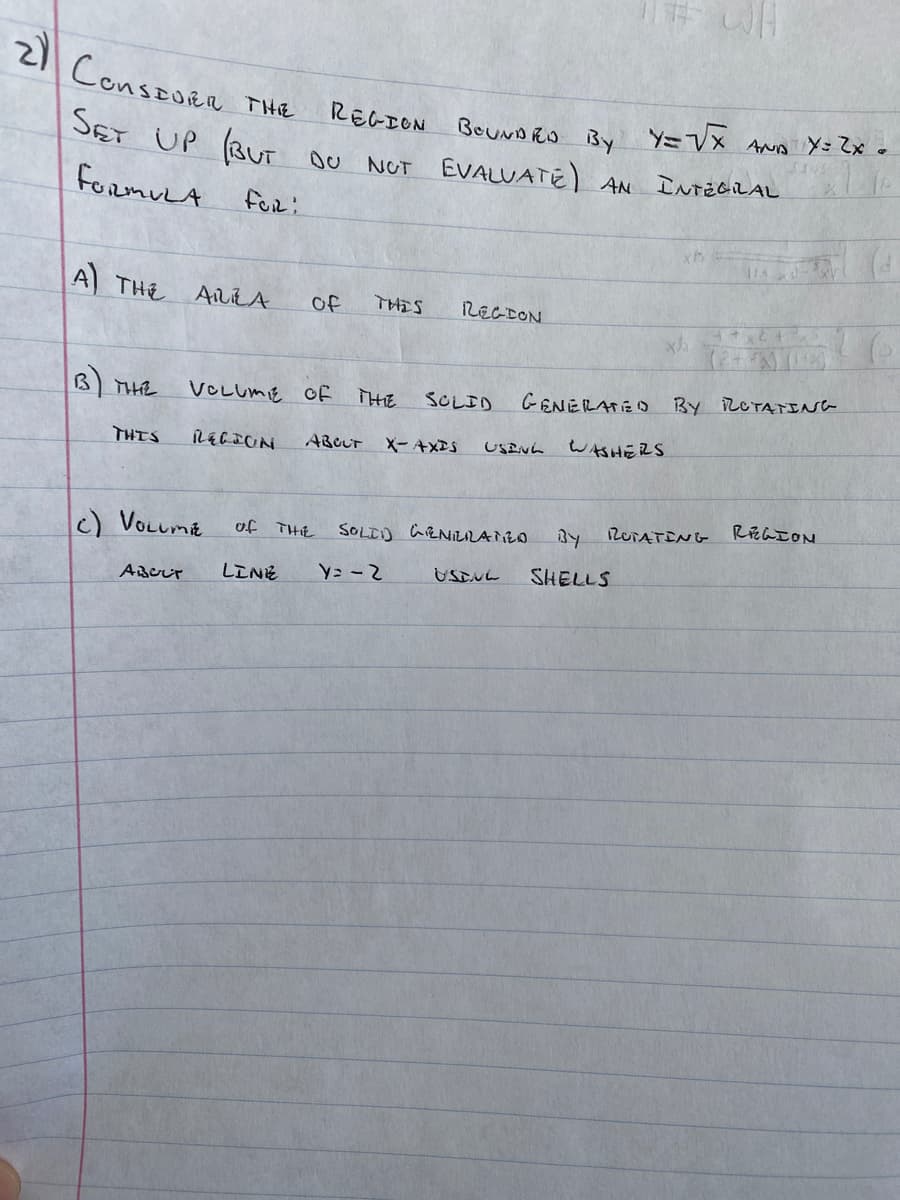 2) CONSIDER THE REGION BOUNDED BY Y=√X AND Y=2X.
SET UP (BUT DO NOT EVALUATE) AN INTEGRAL
FORMULA FOR:
A) THE AREA OF THIS REGION
B) THE VOLUME OF THE SOLID GENERATED BY ROTATING
THIS REGION ABOUT X-AXIS USING WASHERS
C) VOLUME OF THE SOLID GENERATED BY ROTATING REGION
ABOUT LINE Y=-2 USING SHELLS